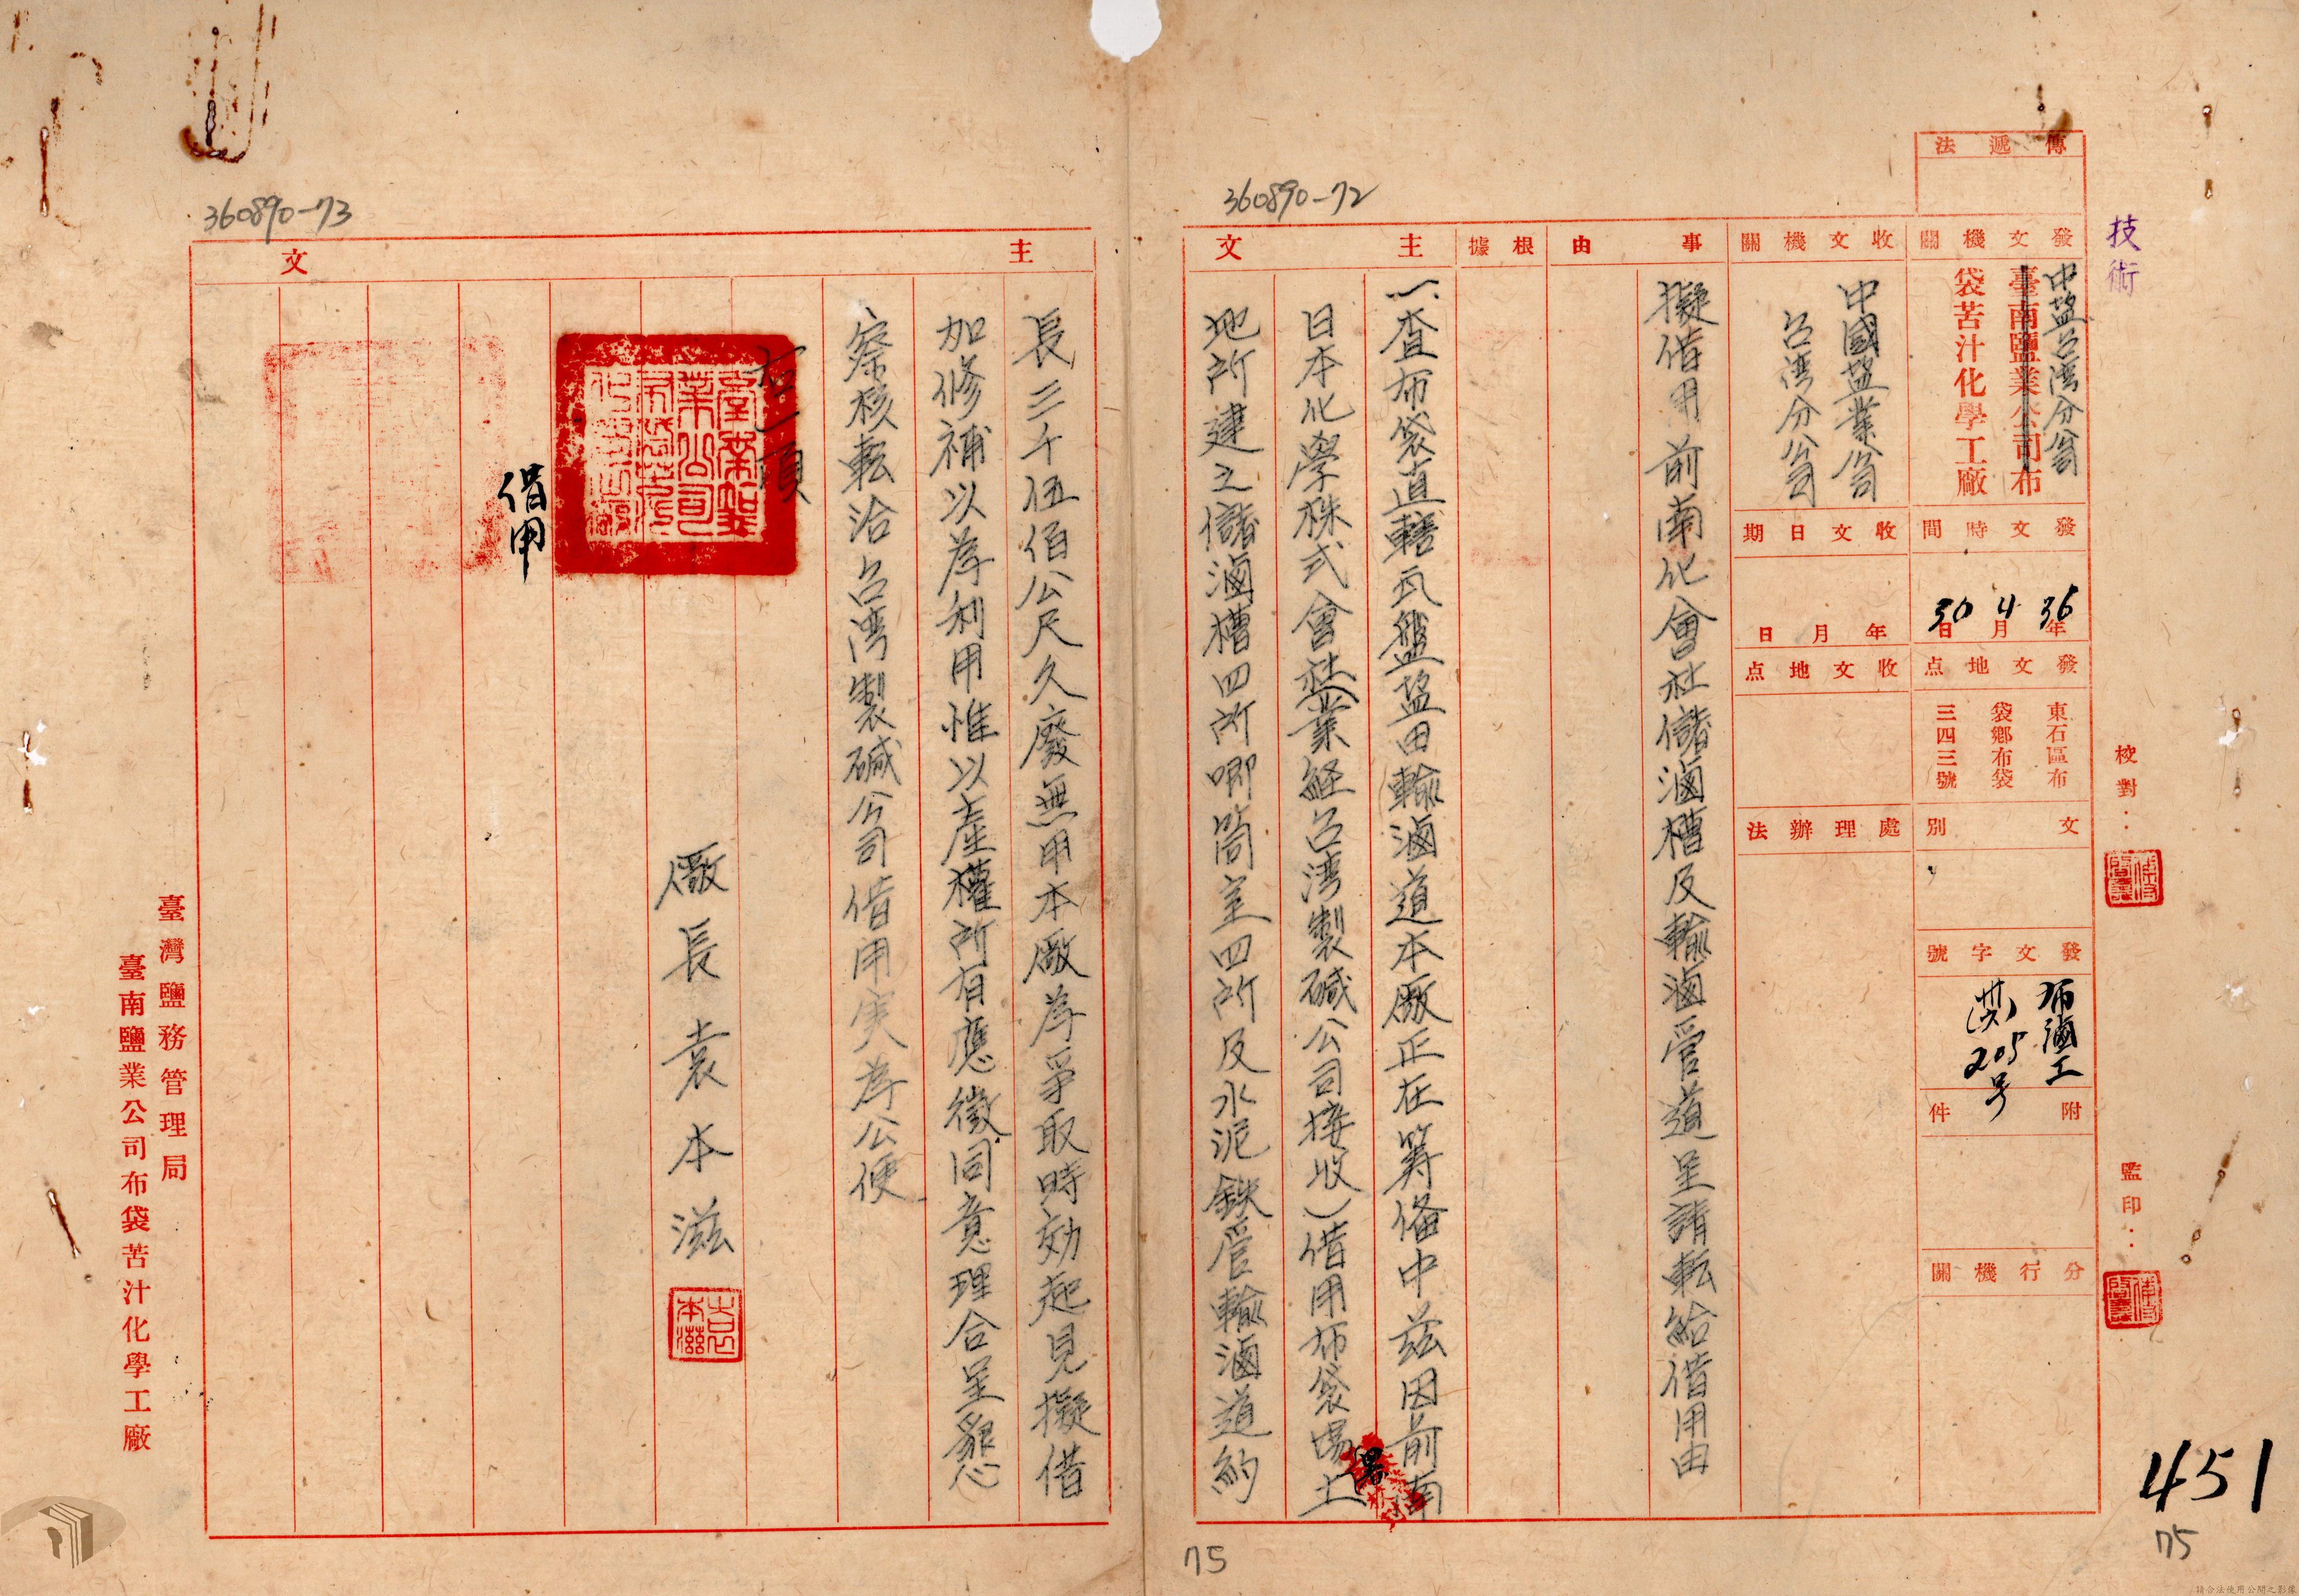 技術
校對：
監印：
451
75
傳遞法
發文機關
中盐台湾分公司
臺南鹽業公司布
袋苦汁化學工廠
發文時間
36年4月30日
發文地点
東石區布
袋鄉布袋
三四三號
文別
發文字號
布滷工
(卅六)205号
附件
分行機關
收文機關
中國盐業公司
台湾分公司
收文日期
年月日
收文地点
處理辦法
事由
擬借用前南化會社儲滷槽及輸滷管道呈請転給借用由
根據
主文
一、查布袋直轄瓦盤盐田輸滷道本廠正在筹备中茲因前南
日本化學株式會社(業経台湾製碱公司接收)借用布袋場土
地所建之儲滷槽四所唧筒室四所及水泥鉄管輸滷道約
360890-72
75
主文
長三千伍佰公尺久廢無用本廠為爭取時効起見擬借
加修補以為利用惟以產權所有應徵同意理合呈懇
察核転洽台湾製碱公司借用実為公便
右一項
廠長袁本滋
袁本滋
借用
360890-73
臺灣鹽務管理局
臺南鹽業公司布袋苦汁化學工廠
請合法使用公開之影像